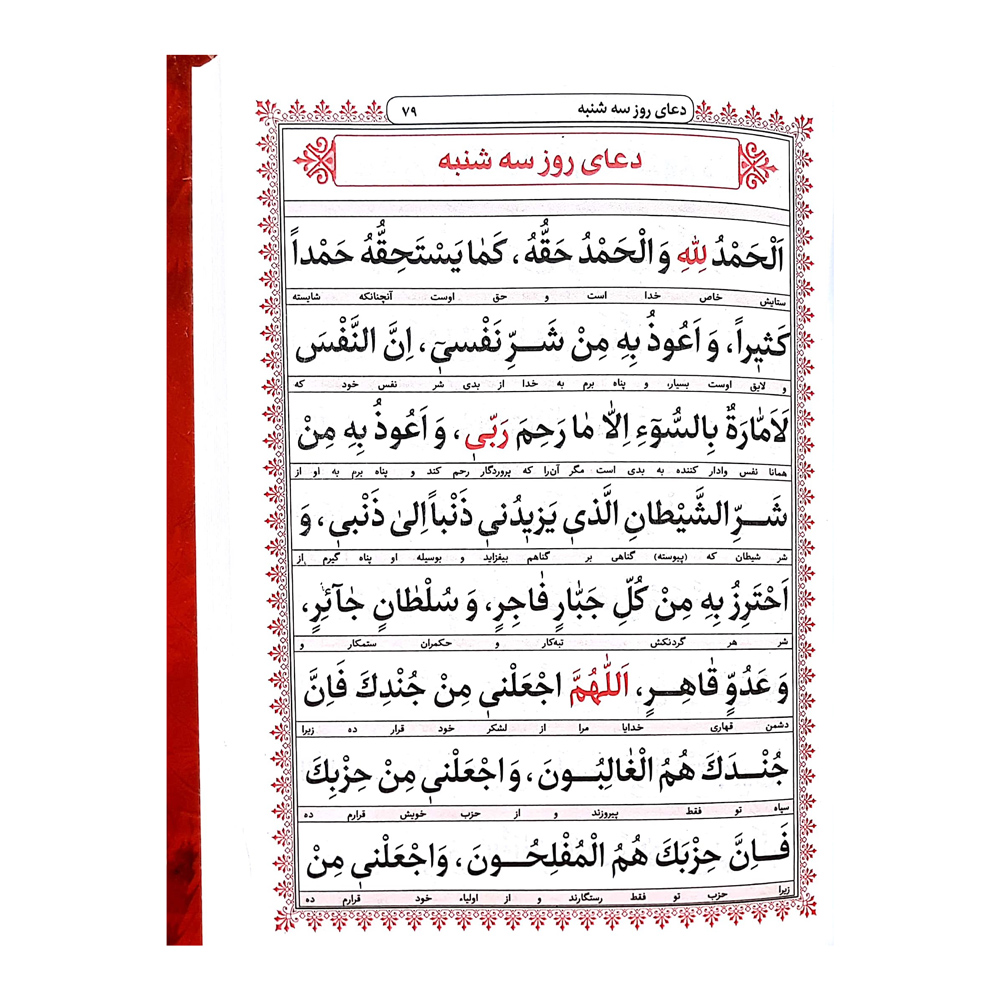 دعای روز سه شنبه ۷۹
دعای روز سه شنبه
اَلْحَمْدُ لِلّٰهِ وَ الْحَمْدُ حَقُّهُ، كَمٰا يَسْتَحِقُّهُ حَمْداً
ستایش خاص خدا است و حق اوست آنچنانکه شایسته
كَثيٖراً، وَ اَعُوذُ بِهِ مِنْ شَــرِّ نَفْسيٓ، اِنَّ النَّفْسَ
و لایق اوست بسیار، و پناه برم به خدا از بدی شر نفس خود که
لَاَمّٰارَةٌ بِالسُّوٓءِ اِلّٰا مٰا رَحِمَ رَبّيٖ، وَ اَعُوذُ بِهِ مِنْ
همانا نفس وادار کننده به بدی است مگر آن‌را که پروردگار رحم کند و پناه برم به او از
شَــرِّ الشَّيْطانِ الَّذيٖ يَزيٖدُنيٖ ذَنْباً اِلیٰ ذَنْبيٖ، وَ
شر شیطان که (پیوسته) گناهی بر گناهم بیفزاید و بوسیله او پناه گیرم از
اَحْتَرِزُ بِهِ مِنْ كُلِّ جَبّٰارٍ فٰاجِرٍ، وَ سُلْطٰانٍ جٰآئِرٍ،
شر هر گردنکش تبه‌کار و حکمران ستمکار و
وَ عَدُوٍّ قٰاهِــرٍ، اَللّٰهُمَّ اجْعَلْنيٖ مِنْ جُنْدِكَ فَاِنَّ
دشمن قهاری خدایا مرا از لشکر خود قرار ده زیرا
جُنْــدَكَ هُمُ الْغٰالِبُــونَ، وَ اجْعَلْنيٖ مِنْ حِزْبِكَ
سپاه تو فقط پیروزند و از حزب خویش قرارم ده
فَــاِنَّ حِزْبَكَ هُمُ الْمُفْلِحُــونَ، وَ اجْعَلْنيٖ مِنْ
زیرا حزب تو فقط رستگارند و از اولیاء خود قرارم ده